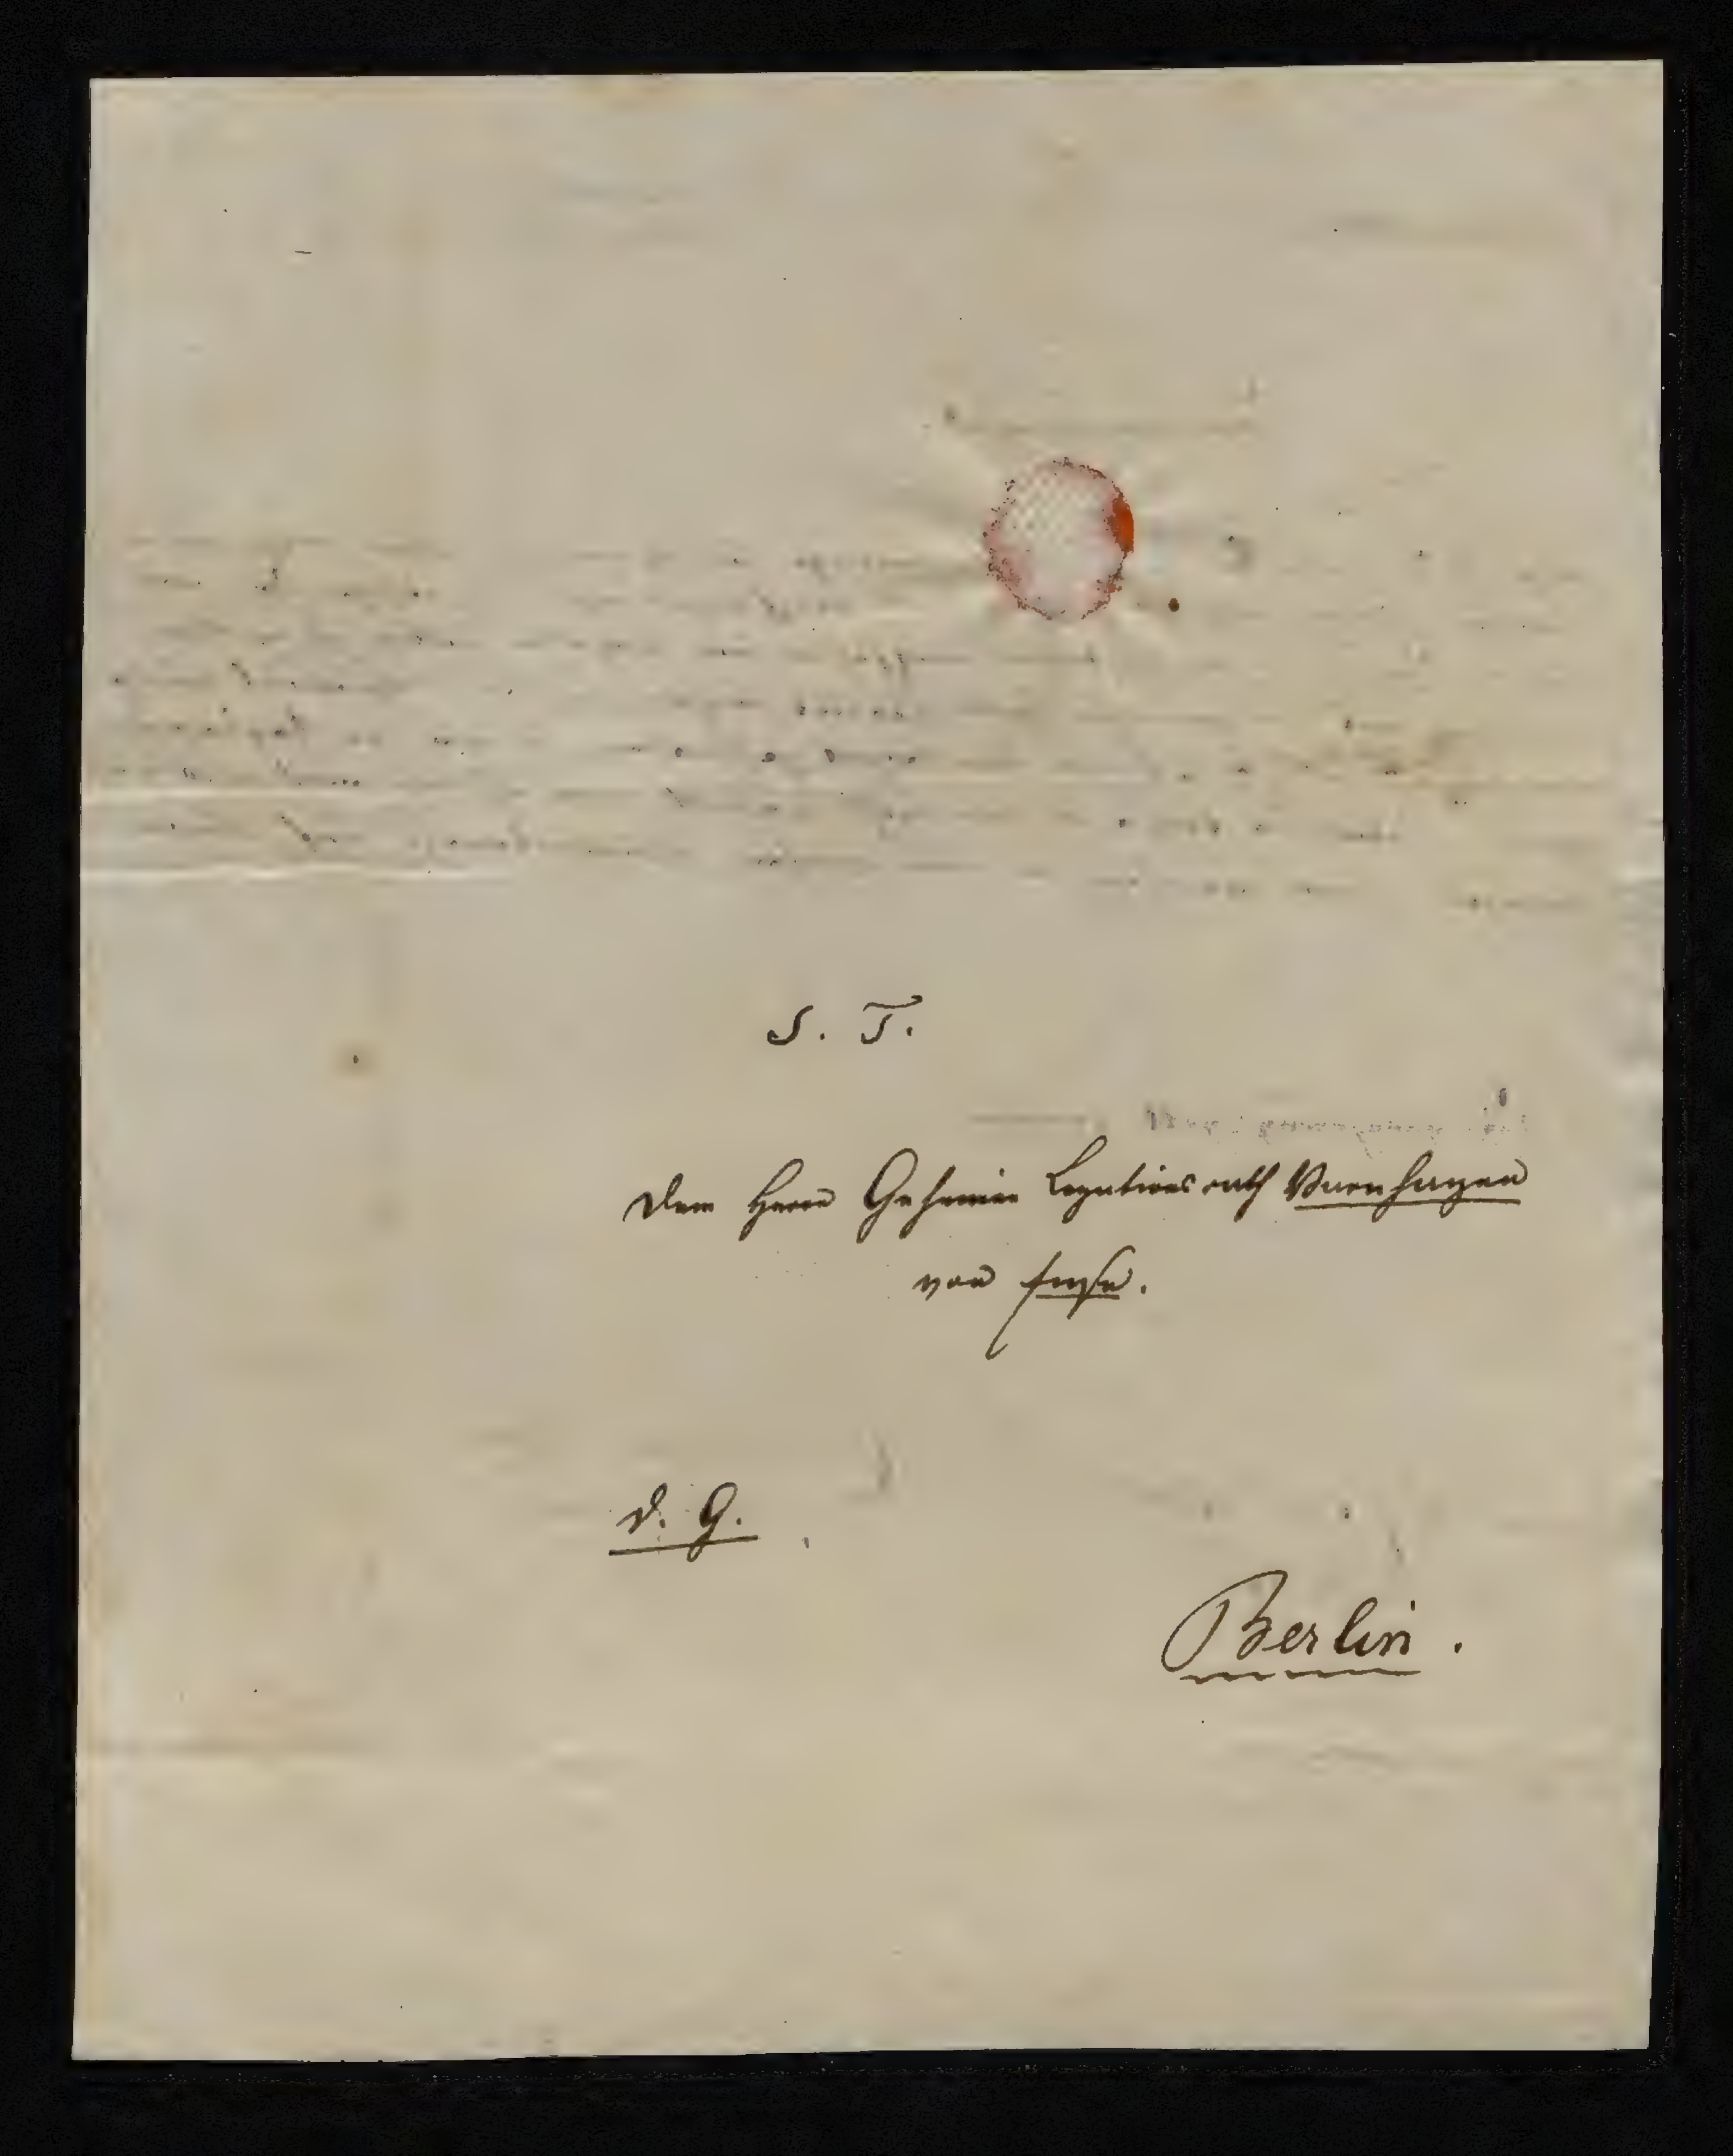 S. T.
Dem Herrn Geheimen Legationsrath Varnhagen
von Ense.
d. G.
Berlin.